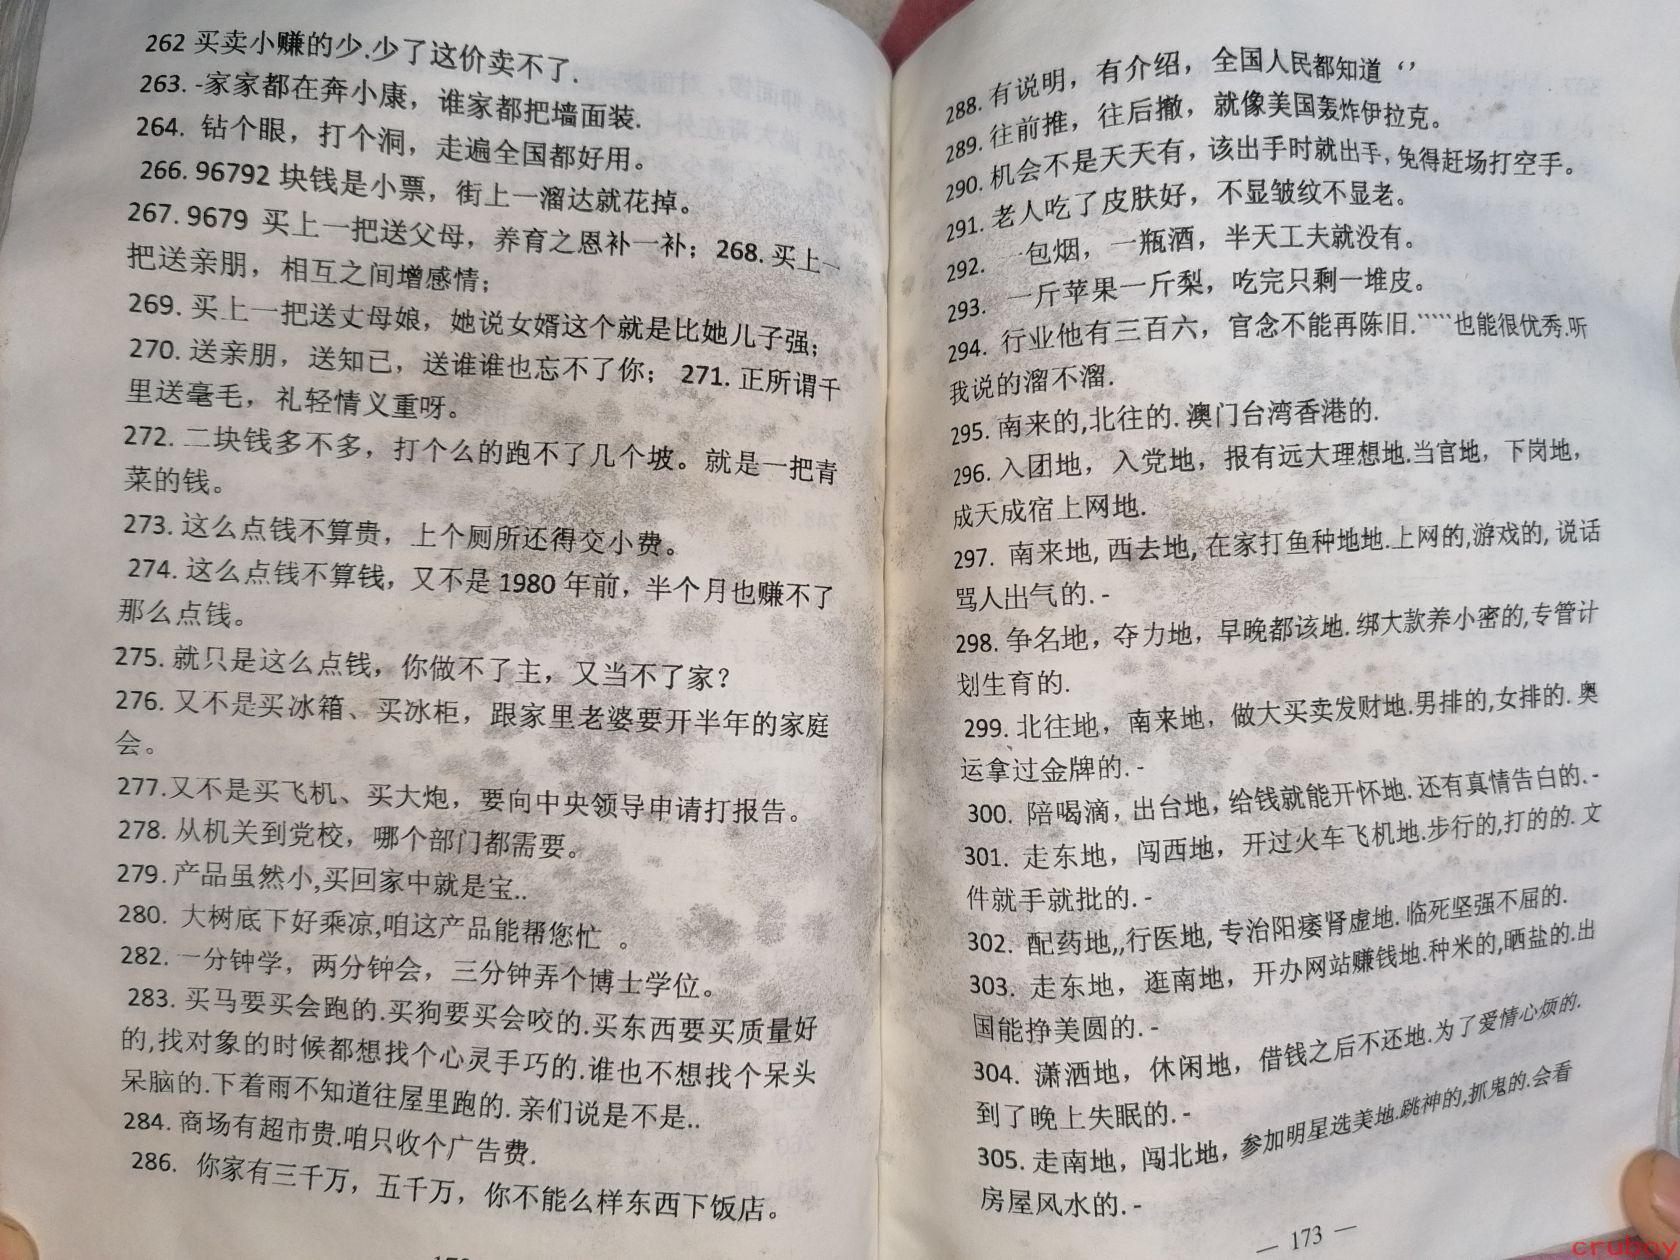 262 买卖小赚的少.少了这价卖不了.
263. -家家都在奔小康，谁家都把墙面装.
264. 钻个眼，打个洞，走遍全国都好用。
266. 96792 块钱是小票，街上一溜达就花掉。
267. 9679 买上一把送父母，养育之恩补一补；268. 买上一
把送亲朋，相互之间增感情；
269. 买上一把送丈母娘，她说女婿这个就是比她儿子强；
270. 送亲朋，送知己，送谁谁也忘不了你； 271. 正所谓千
里送毫毛，礼轻情义重呀。
272. 二块钱多不多，打个么的跑不了几个坡。就是一把青
菜的钱。
273. 这么点钱不算贵，上个厕所还得交小费。
274. 这么点钱不算钱，又不是 1980 年前，半个月也赚不了
那么点钱。
275. 就只是这么点钱，你做不了主，又当不了家？
276. 又不是买冰箱、买冰柜，跟家里老婆要开半年的家庭
会。
277.又不是买飞机、买大炮，要向中央领导申请打报告。
278. 从机关到党校，哪个部门都需要。
279. 产品虽然小,买回家中就是宝..
280. 大树底下好乘凉,咱这产品能帮您忙 。
282. 一分钟学，两分钟会，三分钟弄个博士学位。
283. 买马要买会跑的.买狗要买会咬的.买东西要买质量好
的,找对象的时候都想找个心灵手巧的.谁也不想找个呆头
呆脑的.下着雨不知道往屋里跑的. 亲们说是不是..
284. 商场有超市贵.咱只收个广告费.
286. 你家有三千万，五千万，你不能么样东西下饭店。
288. 有说明，有介绍，全国人民都知道 ‘’
289. 往前推，往后撤，就像美国轰炸伊拉克。
290. 机会不是天天有，该出手时就出手, 免得赶场打空手。
291. 老人吃了皮肤好，不显皱纹不显老。
292. 一包烟，一瓶酒，半天工夫就没有。
293. 一斤苹果一斤梨，吃完只剩一堆皮。
294. 行业他有三百六，官念不能再陈旧.`````也能很优秀.听
我说的溜不溜.
295. 南来的,北往的. 澳门台湾香港的.
296. 入团地，入党地，报有远大理想地.当官地，下岗地，
成天成宿上网地.
297. 南来地, 西去地, 在家打鱼种地地.上网的,游戏的, 说话
骂人出气的. -
298. 争名地，夺力地，早晚都该地. 绑大款养小密的,专管计
划生育的.
299. 北往地，南来地，做大买卖发财地.男排的,女排的. 奥
运拿过金牌的. -
300. 陪喝滴，出台地，给钱就能开怀地. 还有真情告白的. -
301. 走东地，闯西地，开过火车飞机地.步行的,打的的. 文
件就手就批的. -
302. 配药地,,行医地, 专治阳痿肾虚地. 临死坚强不屈的.
303. 走东地，逛南地，开办网站赚钱地.种米的,晒盐的.出
国能挣美圆的. -
304. 潇洒地，休闲地，借钱之后不还地.为了爱情心烦的.
到了晚上失眠的. -
305. 走南地，闯北地，参加明星选美地.跳神的,抓鬼的.会看
房屋风水的. -
— 173 —
cruboy